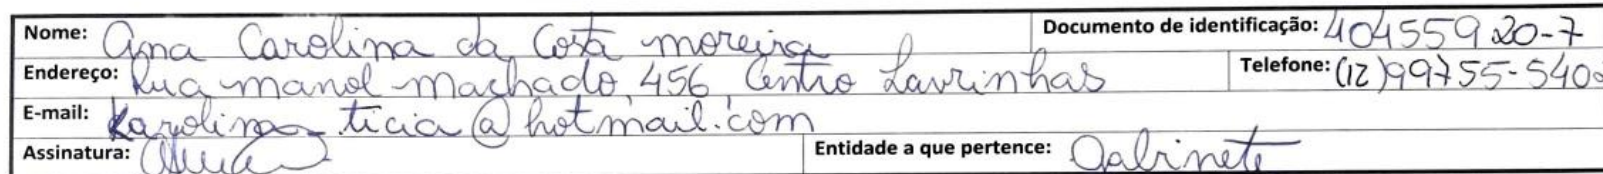 Nome: Ana Carolina da Costa moreira Documento de identificação: 40455920-7
Endereço: Rua manol Machado, 456 Centro Lavrinhas Telefone: (12)99755-540
E-mail: Karolina_ticia@hotmail.com
Assinatura: Entidade a que pertence: Gabinete